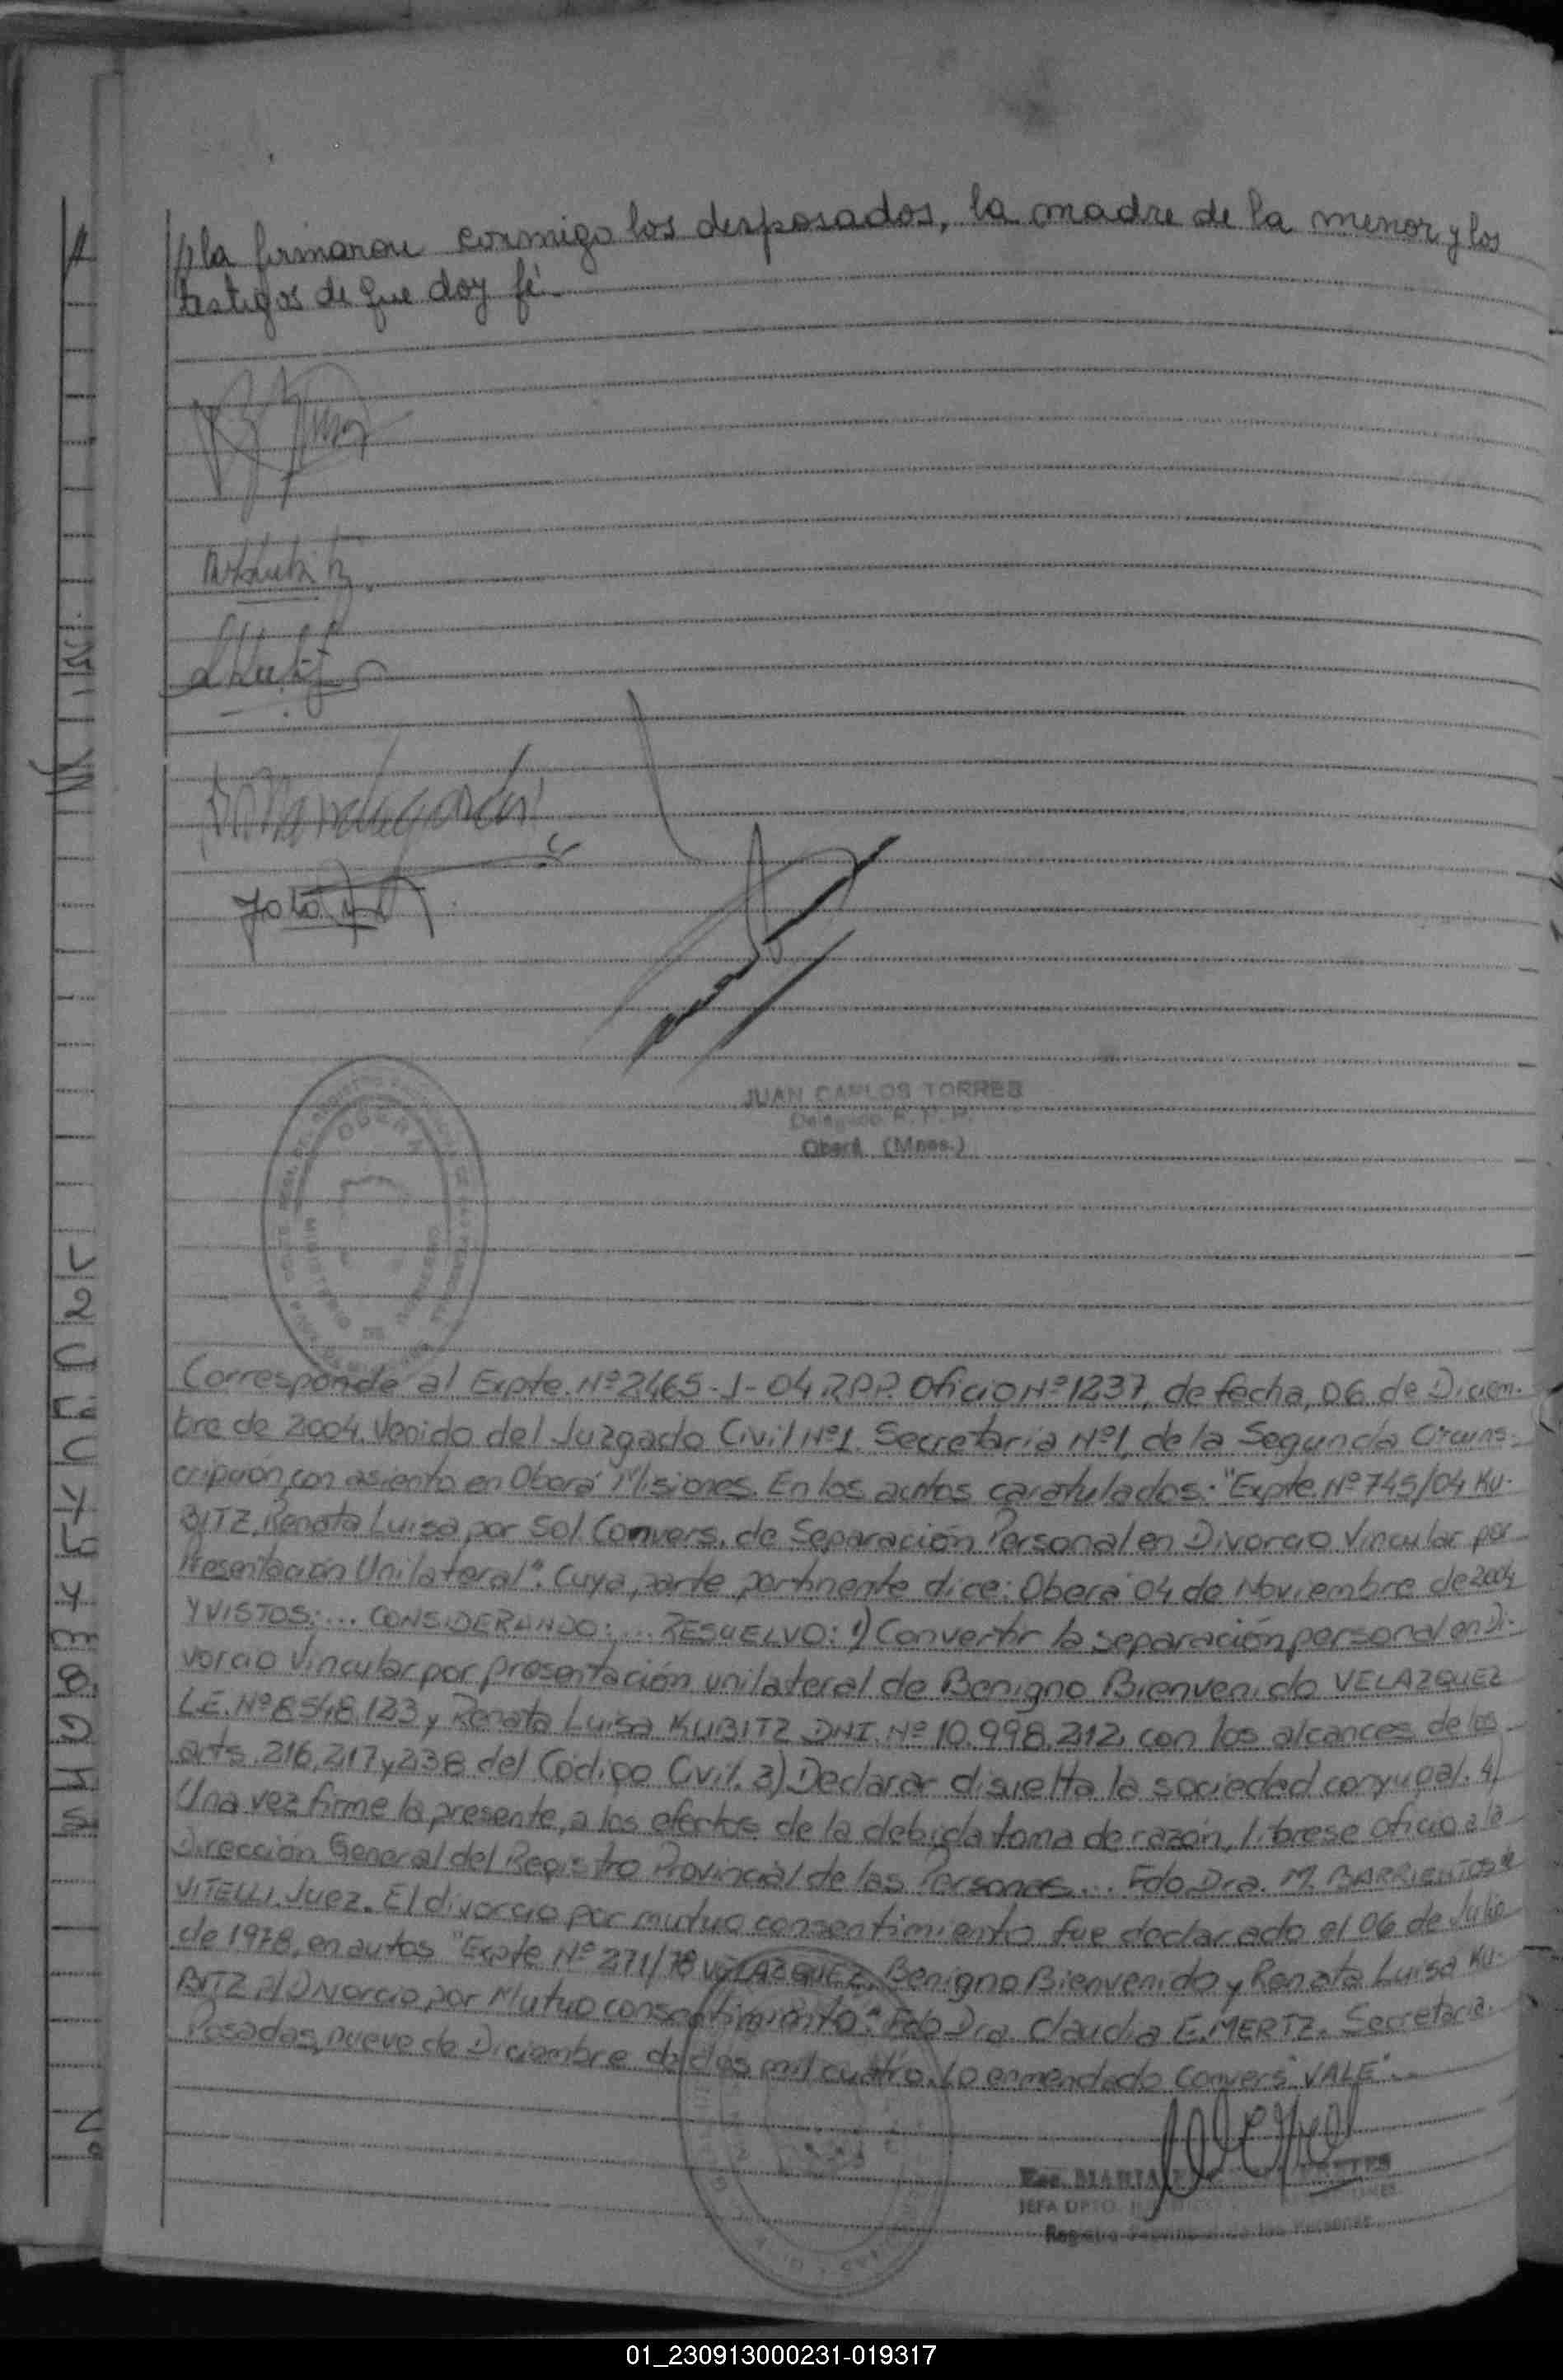 //la firmaron conmigo los desposados, la madre de la menor y los
testigos de que doy fé.-
JUAN CARLOS TORRES
Delegado R. P. P.
Oberá (Mnes.)
OBERA
Corresponde al Expte. Nº 2465-J-04 RPP. Oficio Nº 1237, de fecha, 06 de Diciem-
bre de 2004. Venido del Juzgado Civil Nº 1. Secretaria Nº 1, de la Segunda Circuns-
cripción, con asiento en Oberá Misiones. En los autos caratulados: "Expte. Nº 745/04 KU-
BITZ, Renata Luisa, por Sol. Convers. de Separación Personal en Divorcio Vincular por
Presentación Unilateral". Cuya parte pertinente dice: Oberá 04 de Noviembre de 2004
Y VISTOS:... CONSIDERANDO:... RESUELVO: 1) Convertir la separación personal en Di-
vorcio Vincular por presentación unilateral de Benigno Bienvenido VELAZQUEZ
L.E. Nº 8.548.123 y Renata Luisa KUBITZ DNI. Nº 10.998.212, con los alcances de los
arts. 216, 217 y 238 del Código Civil. 3) Declarar disuelta la sociedad conyugal. 4)
Una vez firme la presente, a los efectos de la debida toma de razón, líbrese oficio a la
Dirección General del Registro Provincial de las Personas... Fdo Dra. M. BARRIENTOS de
VITELLI. Juez. El divorcio por mutuo consentimiento fue declarado el 06 de Julio
de 1978, en autos "Expte Nº 271/78 VELAZQUEZ, Benigno Bienvenido y Renata Luisa KU-
BITZ s/ Divorcio por Mutuo consentimiento". Fdo Dra. Claudia E. MERTZ. Secretaria.
Posadas, nueve de Diciembre de dos mil cuatro. Lo enmendado Convers "VALE".-
Esc. MARIA
JEFA DPTO.
Registro Provincial de las Personas
01_230913000231-019317